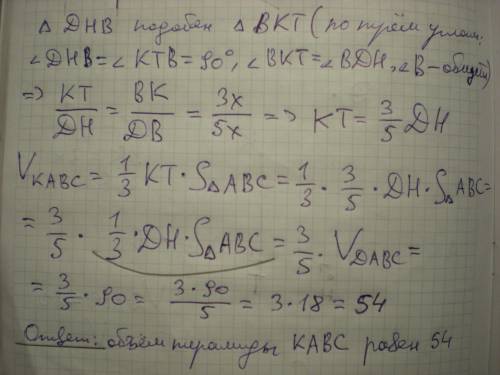 Δ DHB подобен Δ BKT (по трём углам:
∠DHB=∠KTB=90°, ∠BKT=∠BDH, ∠B-общий)
=> KT/DH = BK/DB = 3x/5x => KT = 3/5 DH
V_KABC = 1/3 KT · S_ΔABC = 1/3 · 3/5 · DH · S_ΔABC =
= 3/5 · 1/3 · DH · S_ΔABC = 3/5 · V_DABC =
= 3/5 · 90 = 3·90/5 = 3·18 = 54
Ответ: объём пирамиды KABC равен 54